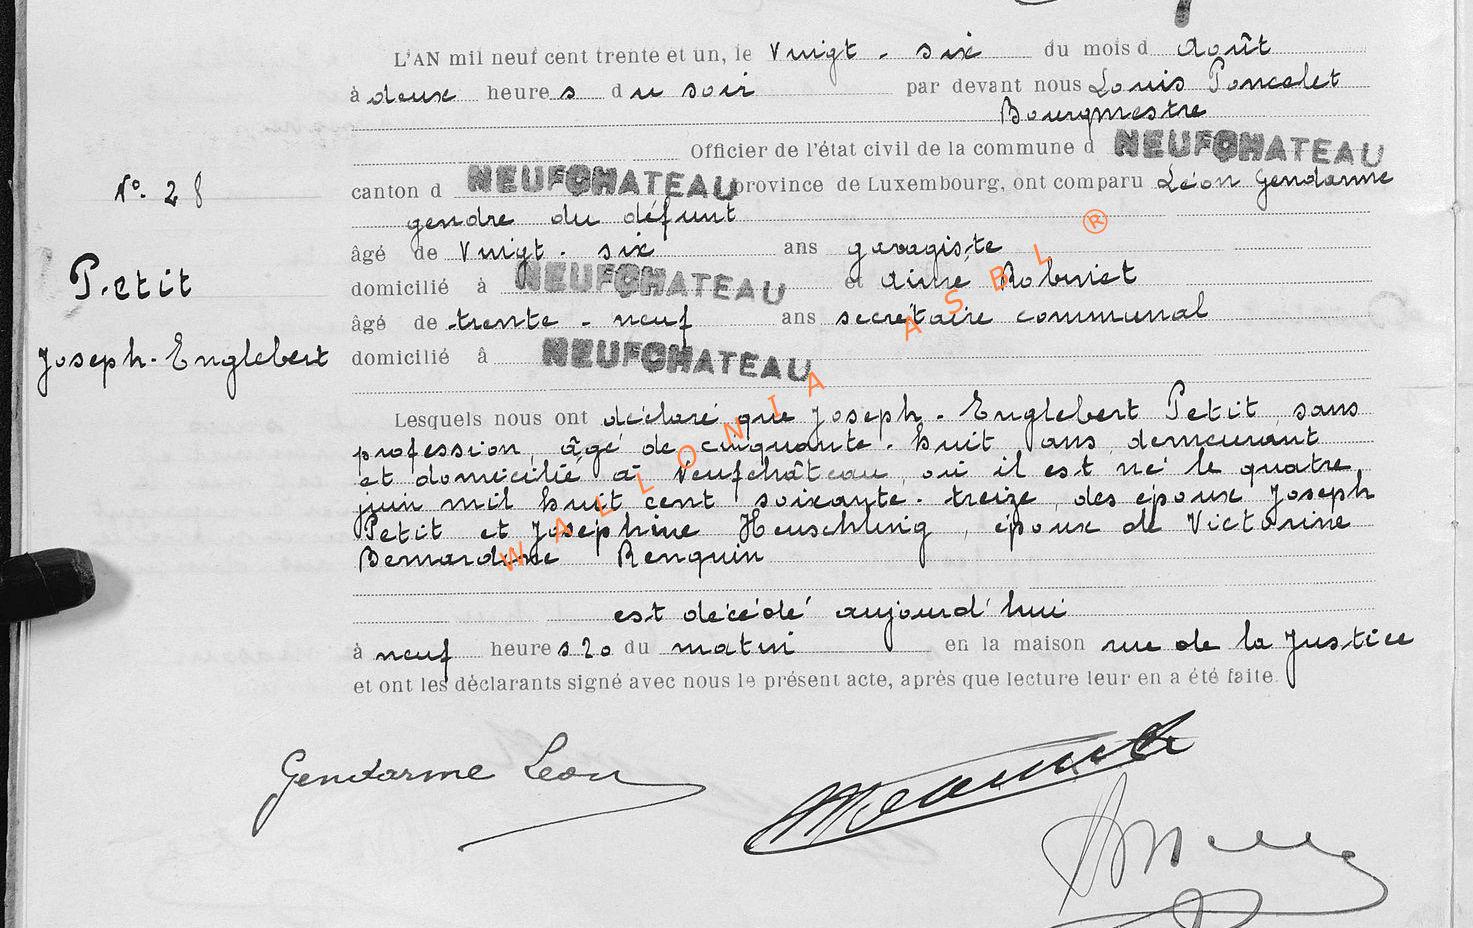 L'AN mil neuf cent trente et un, le Vingt-six du mois d Août
à deux heures du soir par devant nous Louis Poncelet
Bourgmestre
Officier de l'état civil de la commune d NEUFCHATEAU
No. 28
canton d NEUFCHATEAU province de Luxembourg, ont comparu Léon Gendarme
gendre du défunt
âgé de Vingt-six ans garagiste
Petit
domicilié à NEUFCHATEAU et Aimé Robinet
âgé de trente-neuf ans secrétaire communal
Joseph-Englebert
domicilié à NEUFCHATEAU
Lesquels nous ont déclaré que Joseph-Englebert Petit sans
profession, âgé de cinquante-huit ans demeurant
et domicilié à Neufchâteau, où il est né le quatre
juin mil huit cent soixante-treize, des époux Joseph
Petit et Josephine Heuschling, époux de Victorine
Bernardine Renquin
est décédé aujourd'hui
à neuf heures 20 du matin en la maison rue de la Justice
et ont les déclarants signé avec nous le présent acte, après que lecture leur en a été faite.
Gendarme Léon
WALLONIA ASBL ®